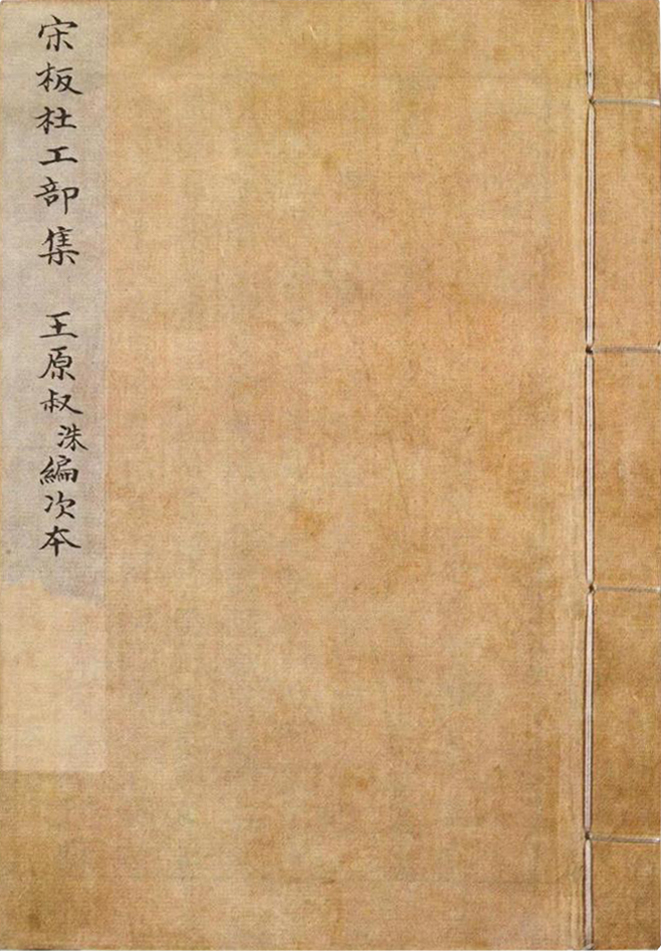 宋板杜工部集 王原叔洙編次本